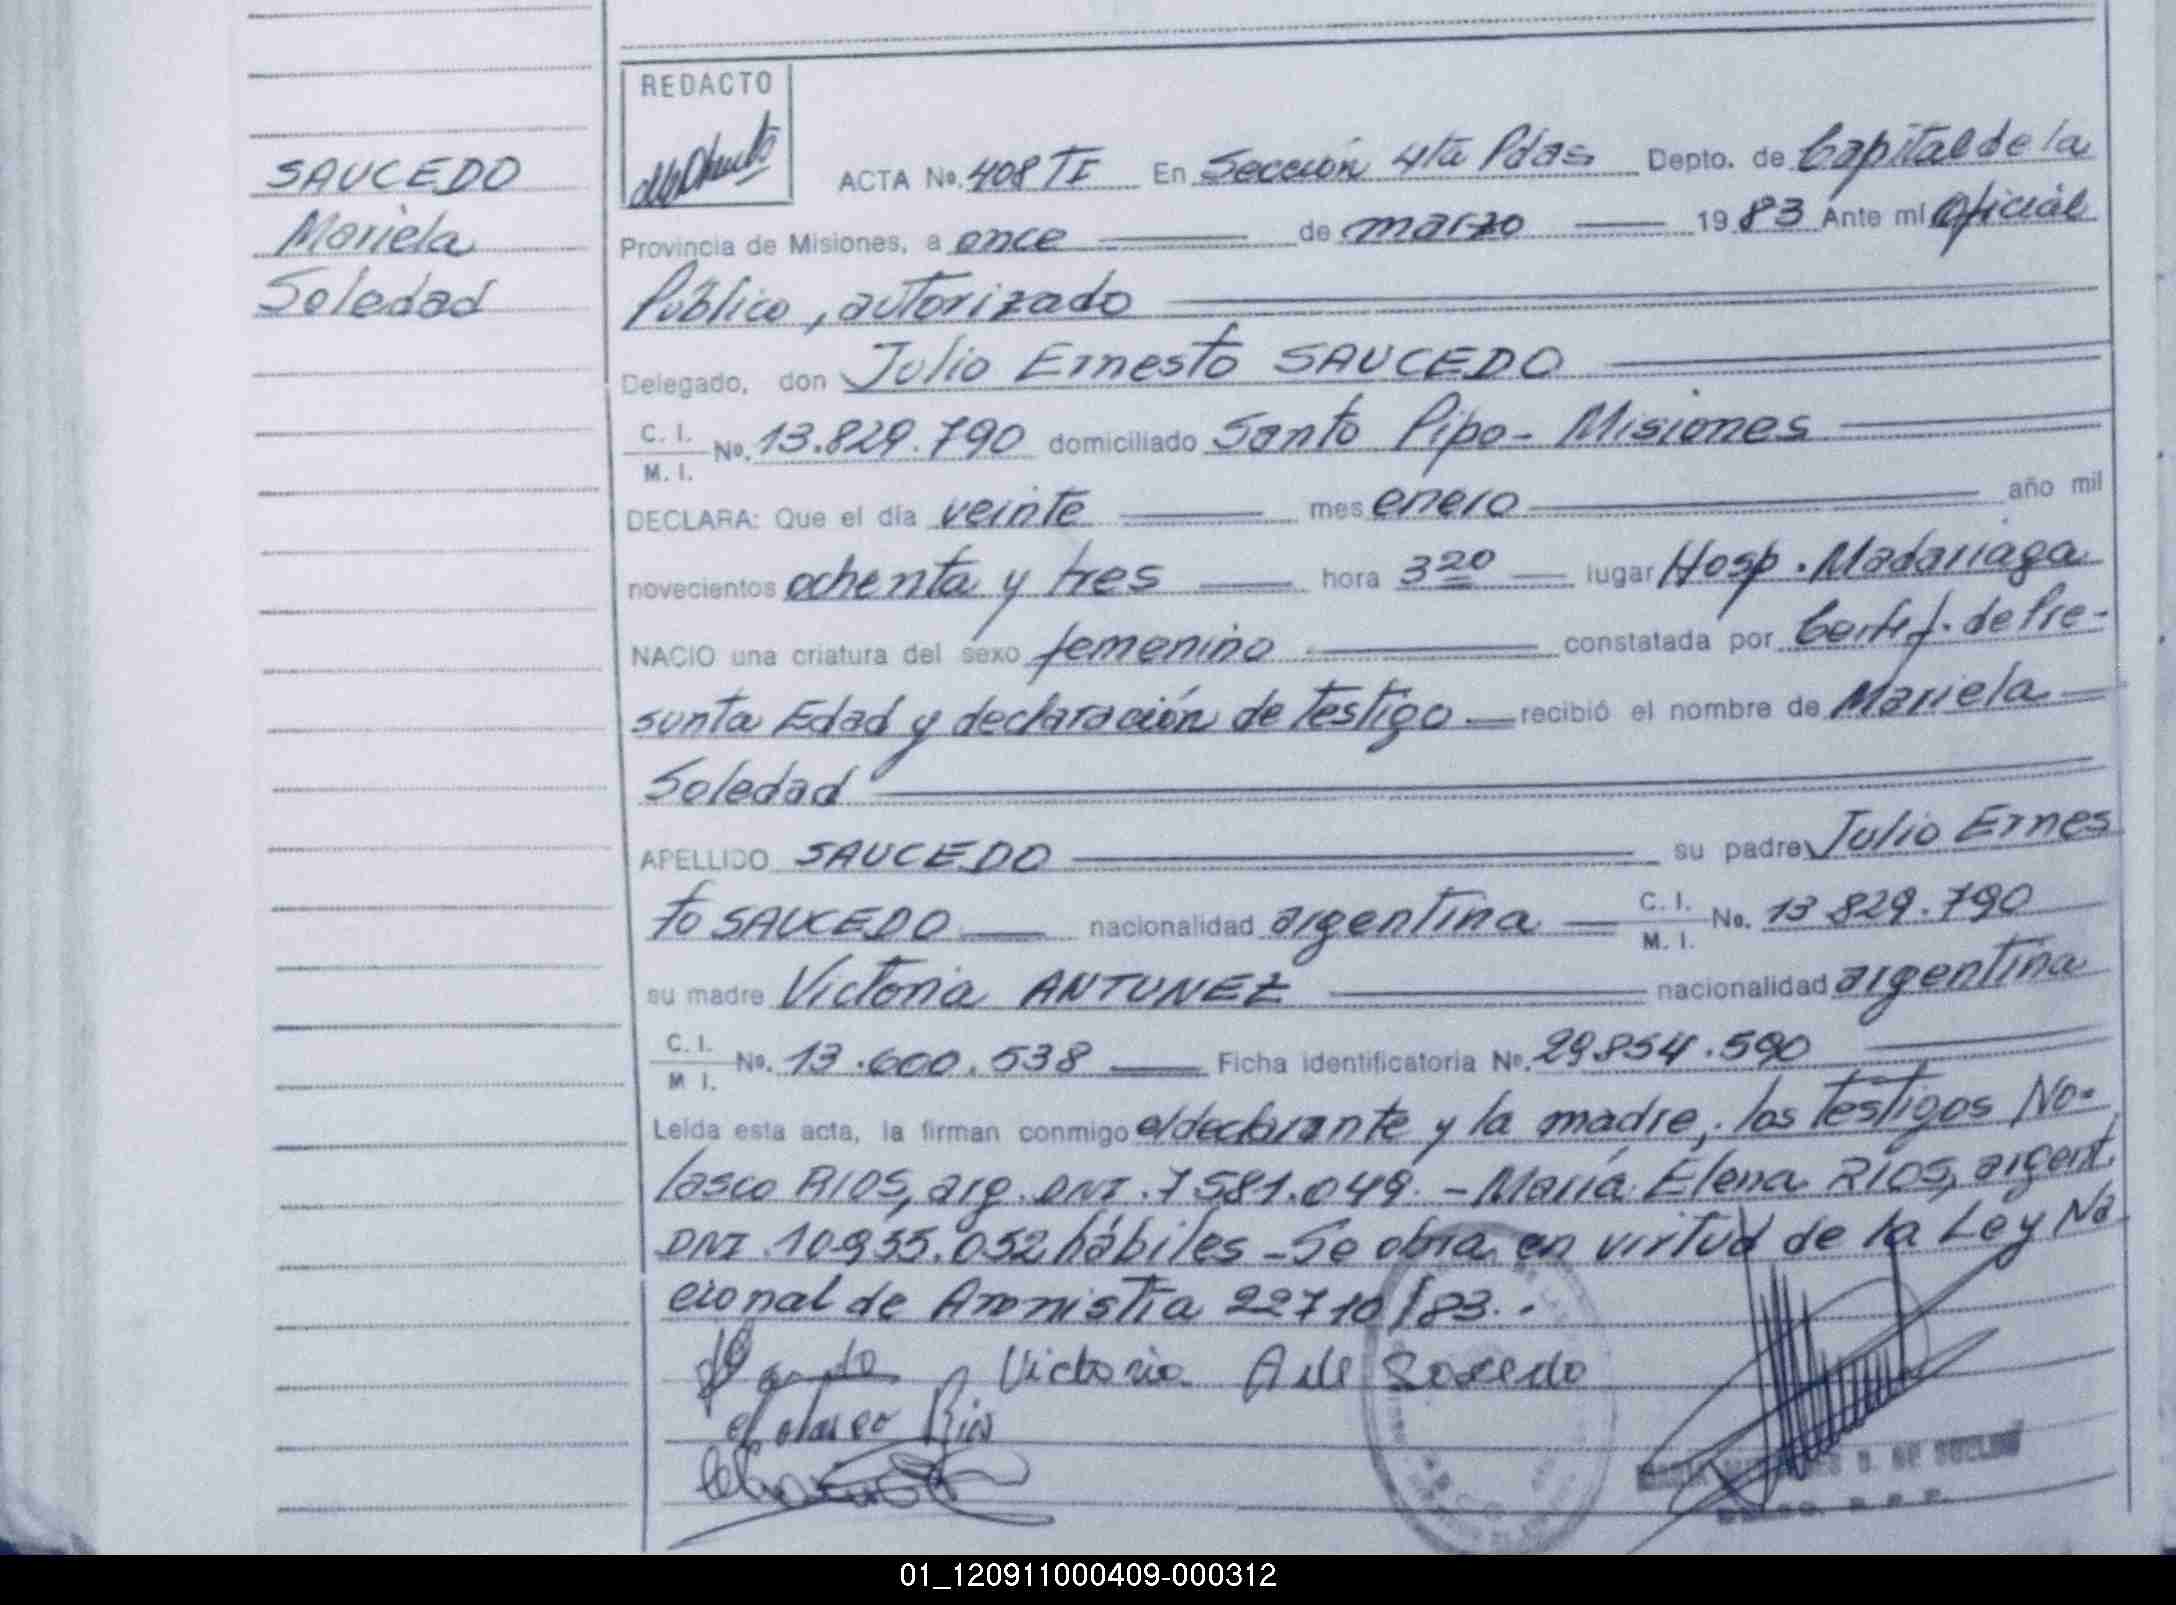 SAUCEDO
Mariela
Soledad
REDACTO
ACTA No. 408 TI En Sección 4ta Pdas Depto. de Capital de la
Provincia de Misiones, a once de marzo 1983 Ante mí Oficial
Público, autorizado
Delegado, don Julio Ernesto SAUCEDO
C. I.
M. I. No. 13.829.790 domiciliado Santo Pipo - Misiones
DECLARA: Que el día veinte mes enero año mil
novecientos ochenta y tres hora 3 20 lugar Hosp. Madariaga
NACIO una criatura del sexo femenino constatada por Certif. de Pre-
sunta Edad y declaración de testigo recibió el nombre de Mariela
Soledad
APELLIDO SAUCEDO su padre Julio Ernes
to SAUCEDO nacionalidad argentina C. I. M. I. No. 13 829.790
su madre Victoria ANTUNEZ nacionalidad argentina
C. I. M I. No. 13.600.538 Ficha identificatoria No. 29854.590
Leída esta acta, la firman conmigo el declarante y la madre, los testigos No-
lasco RIOS, arg. DNI. 7581.049 - María Elena RIOS, argent.
DNI. 10.935.052 hábiles - Se obra en virtud de la Ley Na
cional de Amnistía 22710/83.
Victoria A de Sosedo
Rios
01_120911000409-000312